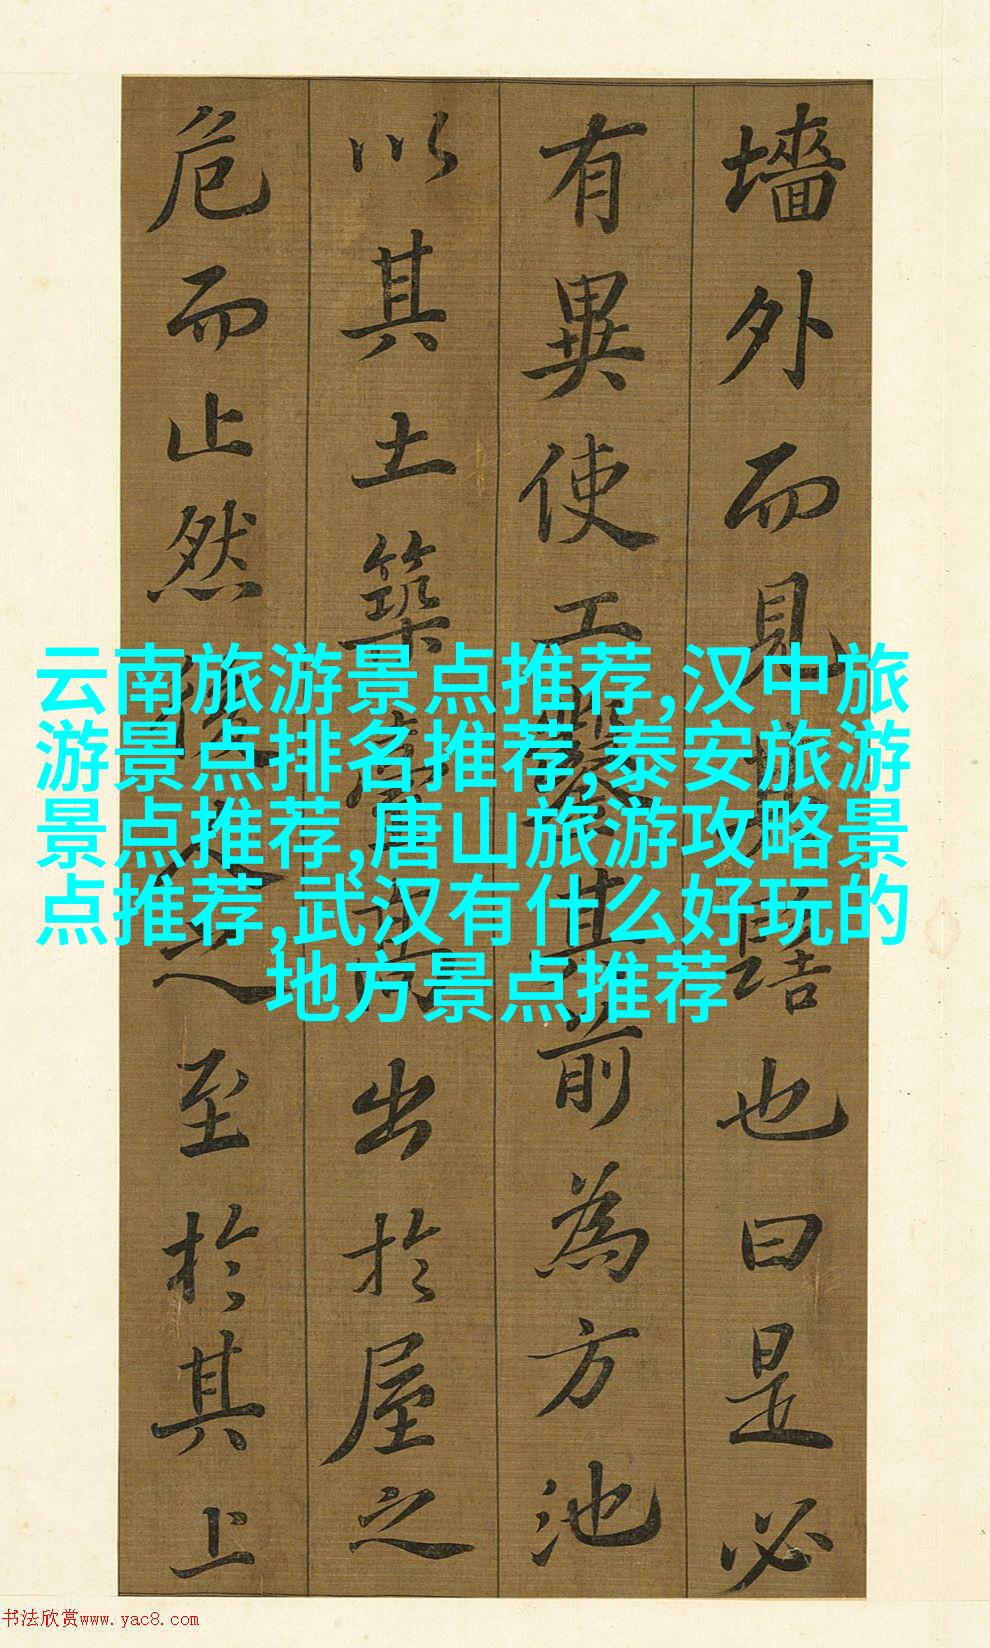 墻外而見其髻也曰是必
有異使工鑿其前為方池
以其土築臺高出於屋之
危而止然後人之至於其上
云南旅游景点推荐,汉中旅
游景点排名推荐,泰安旅游
景点推荐,唐山旅游攻略景
点推荐,武汉有什么好玩的
地方景点推荐
书法欣赏www.yac8.com